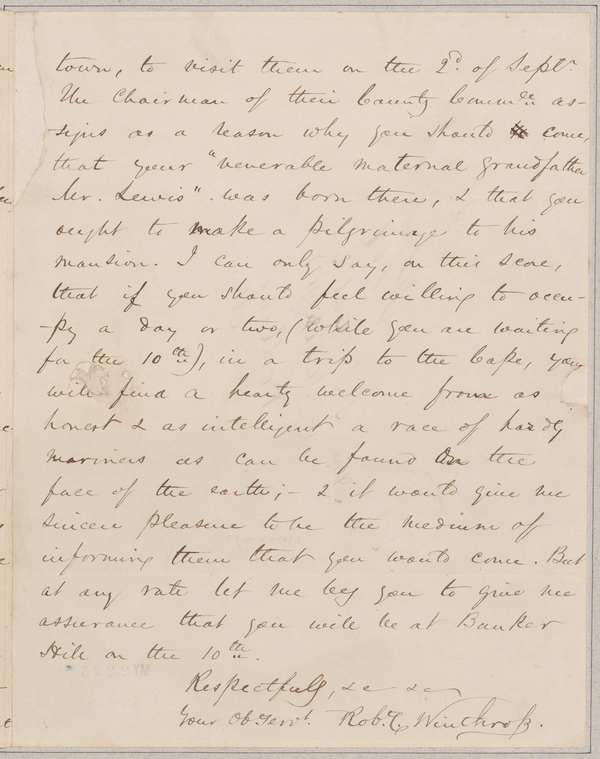 town, to visit them on the 2d. of Sept.
The Chairman of their County Commee as-
-signs as a reason why you should come,
that your "venerable maternal grandfather
Mr. Lewis" was born there, & that you
ought to make a pilgrimage to his
mansion. I can only say, on this score,
that if you should feel willing to occu-
-py a day or two, (while you are waiting
for the 10th), in a trip to the Cape, you
will find a hearty welcome from as
honest & as intelligent a race of hardy
mariners as can be found on the
face of the earth; - & it would give me
sincere pleasure to be the medium of
informing them that you would come. But
at any rate let me beg you to give me
assurance that you will be at Bunker
Hill on the 10th.
Respectfully, &c &c
Your Ob. Servt. Robt. C. Winthrop.